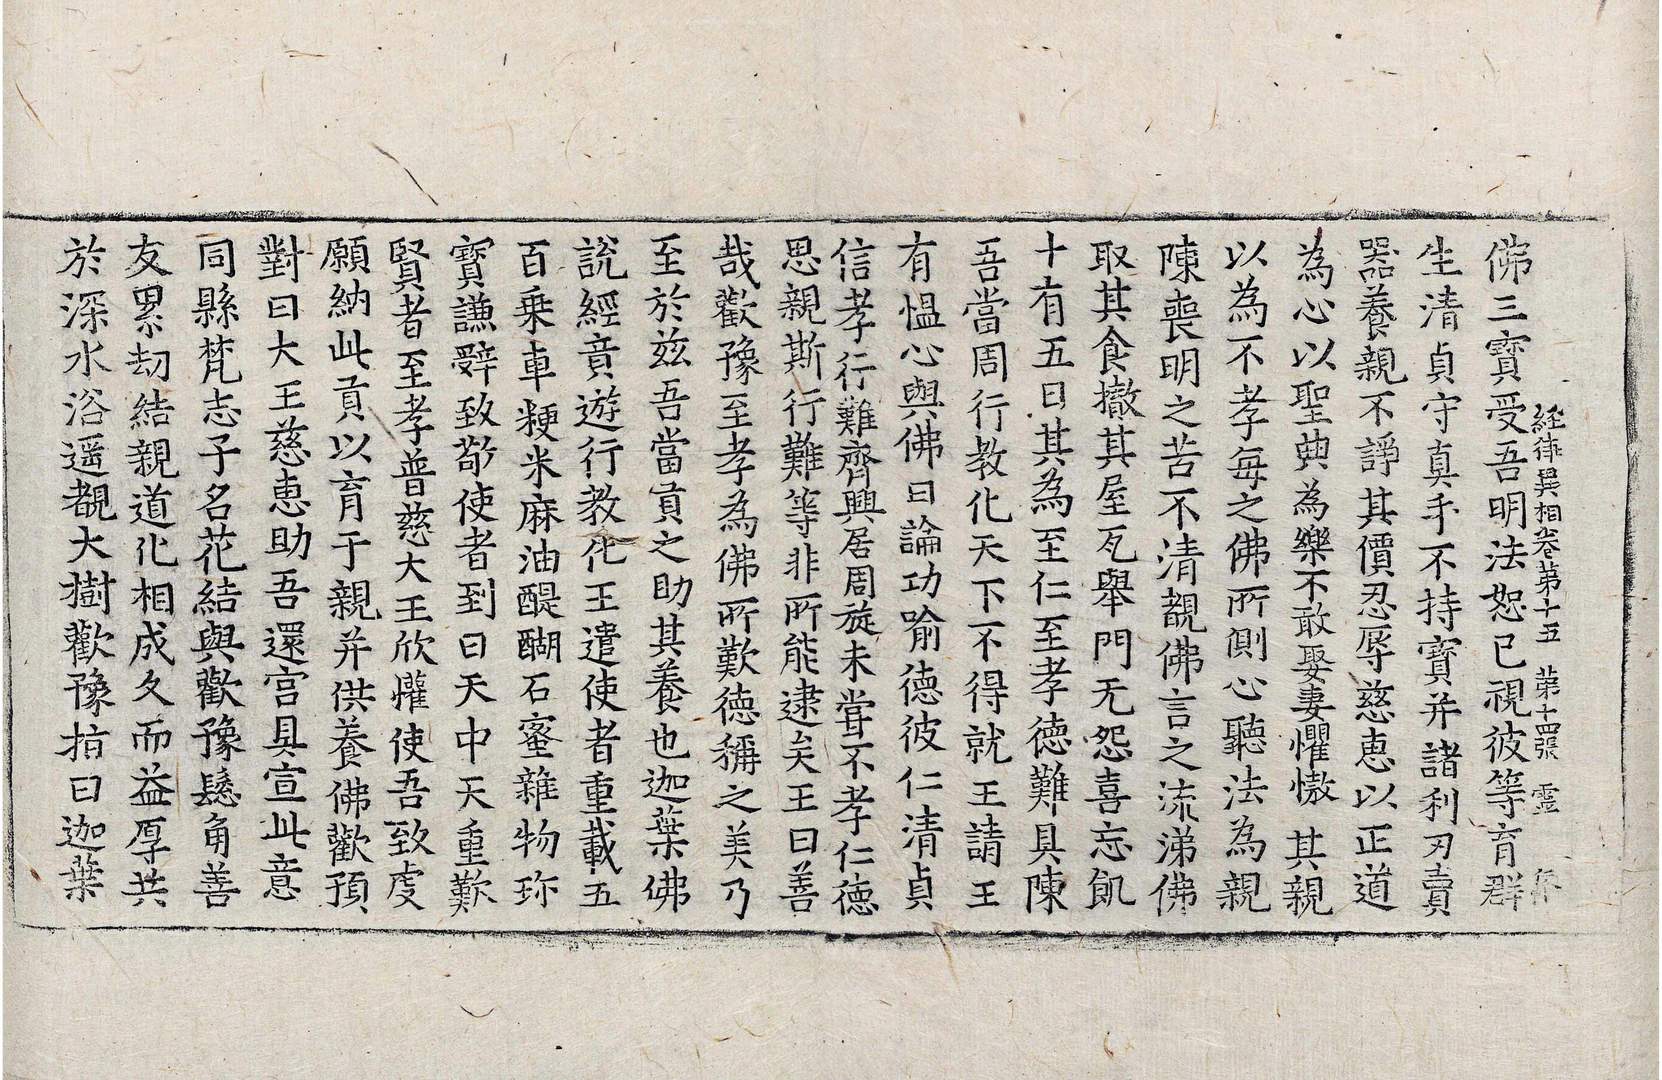 經律異相卷第十五 第十四張 靈
佛三寶受吾明法恕已視彼等育群
生清貞守真手不持寶并諸利刃賣
器養親不諍其價忍辱慈恵以正道
為心以聖典為樂不敢娶妻懼慠其親
以為不孝每之佛所側心聽法為親
陳喪明之苦不清覩佛言之流涕佛
取其食撤其屋瓦舉門无怨喜忘飢
十有五日其為至仁至孝德難具陳
吾當周行教化天下不得就王請王
有愠心與佛曰論功喻德彼仁清貞
信孝行難齊興居周旋未甞不孝仁德
思親斯行難等非所能逮矣王曰善
哉歡豫至孝為佛所歎德稱之美乃
至於兹吾當貢之助其養也迦葉佛
說經竟遊行教化王遣使者重載五
百乗車粳米麻油醍醐石蜜雜物珎
寶謙辤致敬使者到曰天中天重歎
賢者至孝普慈大王欣懼使吾致虔
願納此貢以育于親并供養佛歡預
對曰大王慈恵助吾還宫具宣此意
同縣梵志子名花結與歡豫髫角善
友累劫結親道化相成久而益厚共
於深水浴遥覩大樹歡豫指曰迦葉